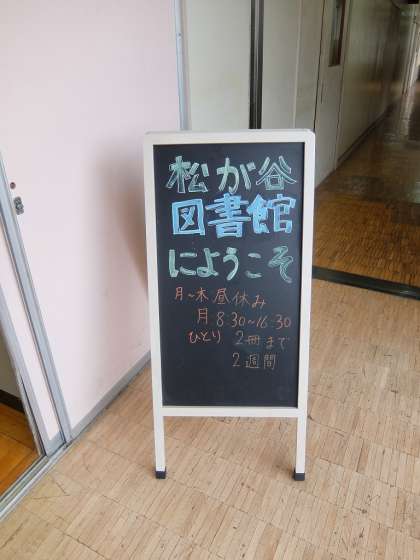 松が谷
図書館
にようこそ
月～木昼休み
月：8:30～16:30
ひとり 2冊まで
2週間